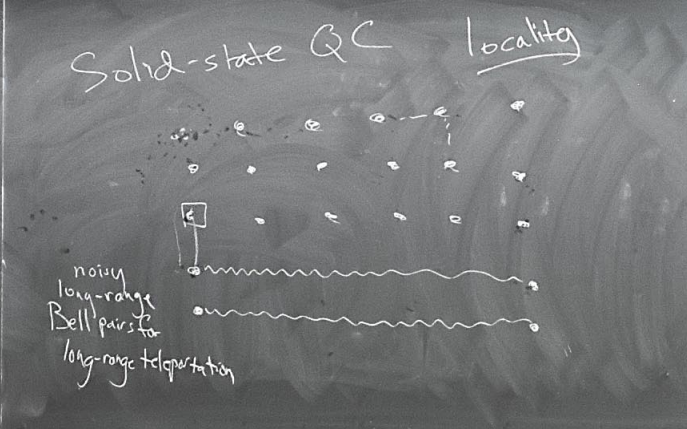 Solid-state QC
locality
noisy
long-range
Bell pairs for
long-range teleportation